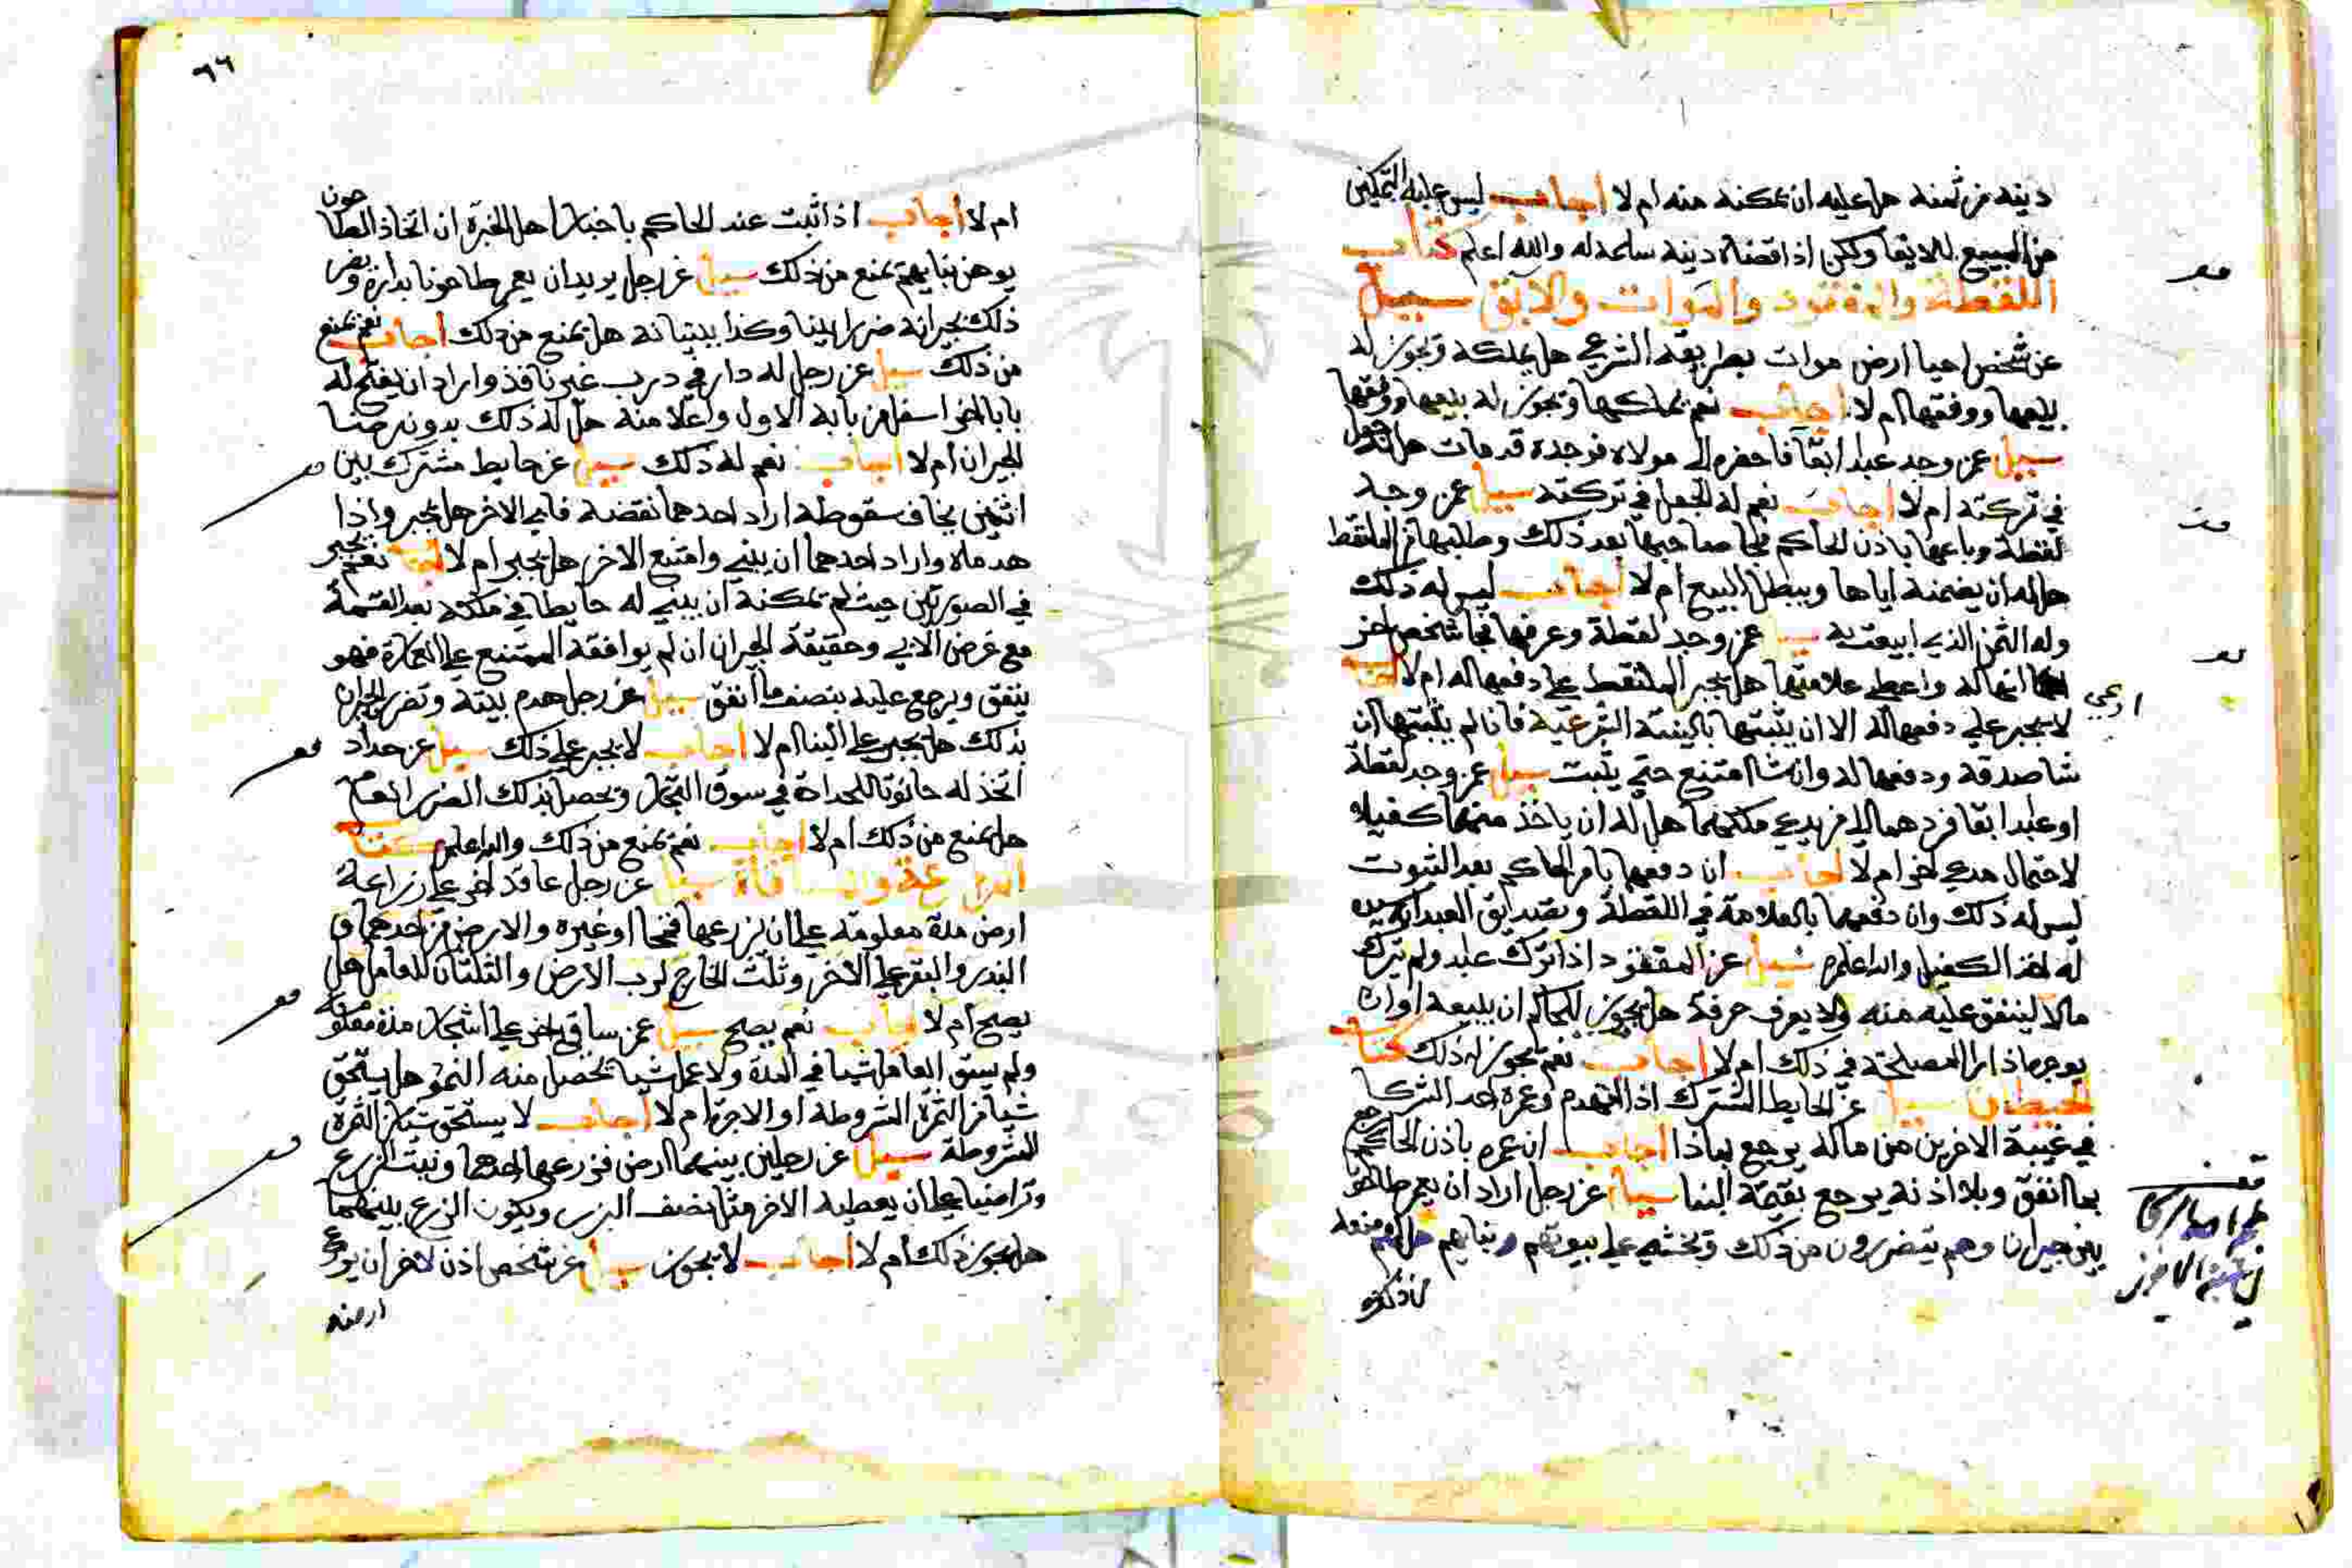 دينه من ثمنه هل عليه ان يمكنه منه ام لا اجاب ليس عليه التمكين
من المبيع للايفا ولكن اذا قضاه دينه سلمه له والله اعلم كتاب
اللقطة والمفقود والموات والآبق سيل
عن شخص احيا ارض موات بطريقه الشرعي هل يملكه ويجوز له
بيعها ووقفها ام لا اجاب نعم يملكها ويجوز له بيعها ووقفها
سيل عمن وجد عبدا ابقا فاحضره الى مولاه فوجده قد مات هل له جعل
في تركته ام لا اجاب نعم له الجعل في تركته سيل عمن وجد
لقطة وباعها باذن الحاكم فجا صاحبها بعد ذلك وطلبها من الملتقط
هل له ان يضمنه اياها ويبطل البيع ام لا اجاب ليس له ذلك
وله الثمن الذي ابيعت به سيل عمن وجد لقطة وعرفها فجا شخص اخر
انها له واعطى علامتها هل يجبر الملتقط على دفعها له ام لا اجاب
ادعي
لا يجبر على دفعها له الا ان يثبتها بالبينة الشرعية فان لم يثبتها ان
شا صدقه ودفعها له وان شا امتنع حتى يثبت سيل عمن وجد لقطة
او عبدا ابقا فردهما الى من يدعي ملكهما هل له ان ياخذ منهما كفيلا
لاحتمال مدعي اخر ام لا اجاب ان دفعها بامر الحاكم بعد الثبوت
ليس له ذلك وان دفعها بالعلامة في اللقطة وبتصديق العبد
له اخذ الكفيل والله اعلم سيل عن المفقود اذا ترك عبد ولم يترك
مالا لينفق عليه منه ولا يعرف حرفة هل يجوز للحاكم ان يبيعه او ان
يوجره اذا راى المصلحة في ذلك ام لا اجاب نعم يجوز له ذلك كتاب
الحيطان سيل عن الحايط المشترك اذا انهدم وعمره احد الشركا
في غيبة الاخرين من ماله يرجع بماذا اجاب ان عمره باذن الحاكم رجع
بما انفق وبلا اذنه يرجع بقيمة البنا سيل عن رجل اراد ان يعمر طاحون
بين جيران وهم يتضررون من ذلك ويخشى على بيوتهم وبنايهم هل لهم منعه
من ذلك
٦٦
ام لا اجاب اذا ثبت عند الحاكم باخبار اهل الخبرة ان اتخاذ الطاحون
يوهن بنايهم يمنع من ذلك سيل عن رجل يريد ان يعمر طاحونا بداره ويضر
ذلك بجيرانه ضررا بينا وكذا ببنيانه هل يمنع من ذلك اجاب نعم يمنع
من ذلك سيل عن رجل له دار في درب غير نافذ واراد ان يفتح له
بابا اخر اسفل من بابه الاول واعلا منه هل له ذلك بدون رضا
الجيران ام لا اجاب نعم له ذلك سيل عن حايط مشترك بين
اثنين يخاف سقوطه اراد احدهما نقضه فابى الاخر هل يجبر واذا
هدماه واراد احدهما ان يبني وامتنع الاخر هل يجبر ام لا اجاب نعم يجبر
في الصورتين حيث لم يمكنه ان يبني له حايطا في ملكه بعد القسمة
مع غرض الابي وحقيقة الجبران ان لم يوافقه الممتنع على العمارة فهو
ينفق ويرجع عليه بنصف ما انفق سيل عن رجل هدم بيته وتضر الجيران
بذلك هل يجبر على البنا ام لا اجاب لا يجبر على ذلك سيل عن حداد
اتخذ له حانوتا للحدادة في سوق التجار ويحصل بذلك الضرر العام
هل يمنع من ذلك ام لا اجاب نعم يمنع من ذلك والله اعلم كتاب
المزارعة والمساقاة سيل عن رجل عاقد اخر على زراعة
ارض مدة معلومة على ان يزرعها قمحا او غيره والارض من احدهما و
البذر والبقر على الاخر وثلث الخارج لرب الارض والثلثان للعامل هل
يصح ام لا اجاب نعم يصح سيل عمن ساقى اخر على اشجار مدة معلومة
ولم يسق العامل شيا في المدة ولا عمل شيا تحصل منه النمو هل يستحق
شيا من الثمرة المشروطة او الاجرة ام لا اجاب لا يستحق شيا من الثمرة
المشروطة سيل عن رجلين بينهما ارض فزرعها احدهما ونبت الزرع
وتراضيا على ان يعطيه الاخر مثل نصف البزر ويكون الزرع بينهما
هل يجوز ذلك ام لا اجاب لا يجوز سيل عن شخص اذن لاخر ان يزرع
ارضه